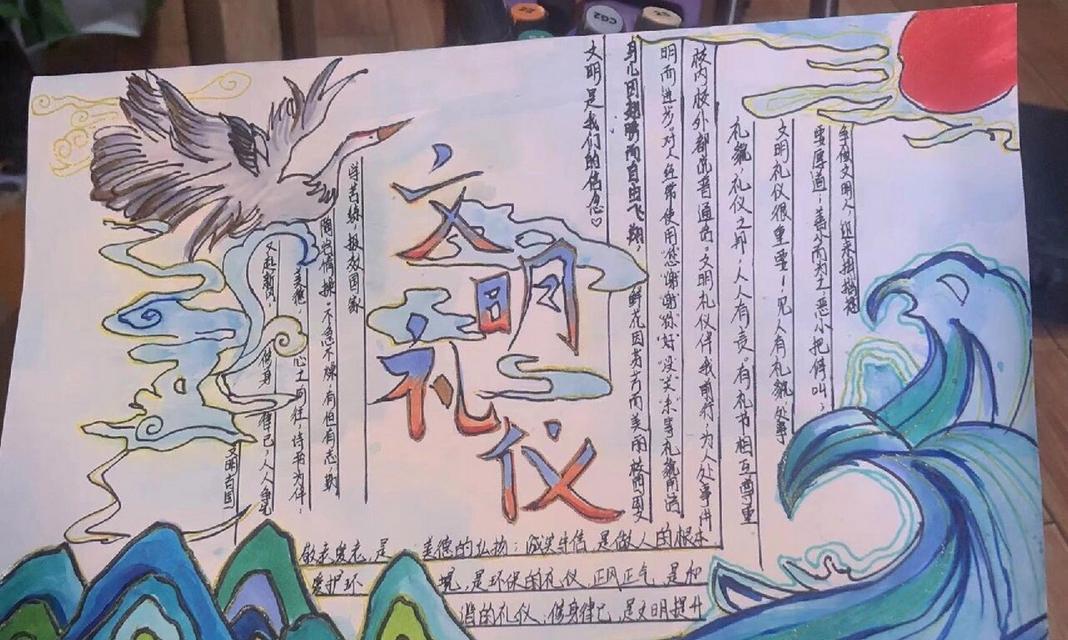 文明礼仪
争做文明人，
要厚道；善小而为之恶小
文明礼仪很重要！见人有礼貌处事
礼貌，礼仪之邦，人人有责。有礼节相互尊重
校内校外都说普通话。文明礼仪伴我前行，为人处事讲
明而进步，对人经常使用您谢谢你好没关系等礼貌用语
身心因翅膀而自由飞翔，鲜花因芬芳而美丽校园因
文明是我们的信念♡
学苦练，报效国家
陶冶情操，不急不燥，有恒有志，
美德，心之向往，诗书为伴，
修身律己，人人争
文明古国
敬老爱老，是美德的弘扬；诚实守信，是做人的根本
爱护环境，是环保的礼仪，正风正气，是和
谐的礼仪，修身律己，是文明提升